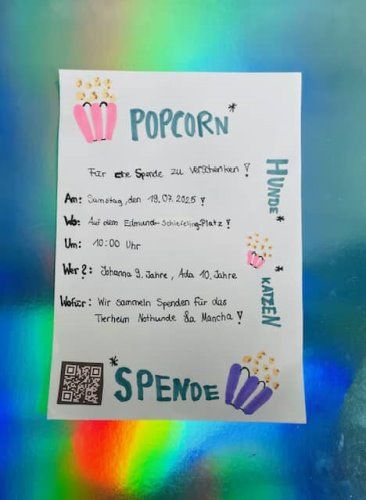 POPCORN*
Für eine Spende zu verschenken!
An: Samstag, den 19.07.2025!
Wo: Auf dem Edmund-Schiefeling-Platz!
Um: 10:00 Uhr
Wer?: Johanna 9. Jahre, Ada 10. Jahre
Wofür: Wir sammeln Spenden für das
Tierheim Nothunde La Mancha!
HUNDE*
*KATZEN
*SPENDE